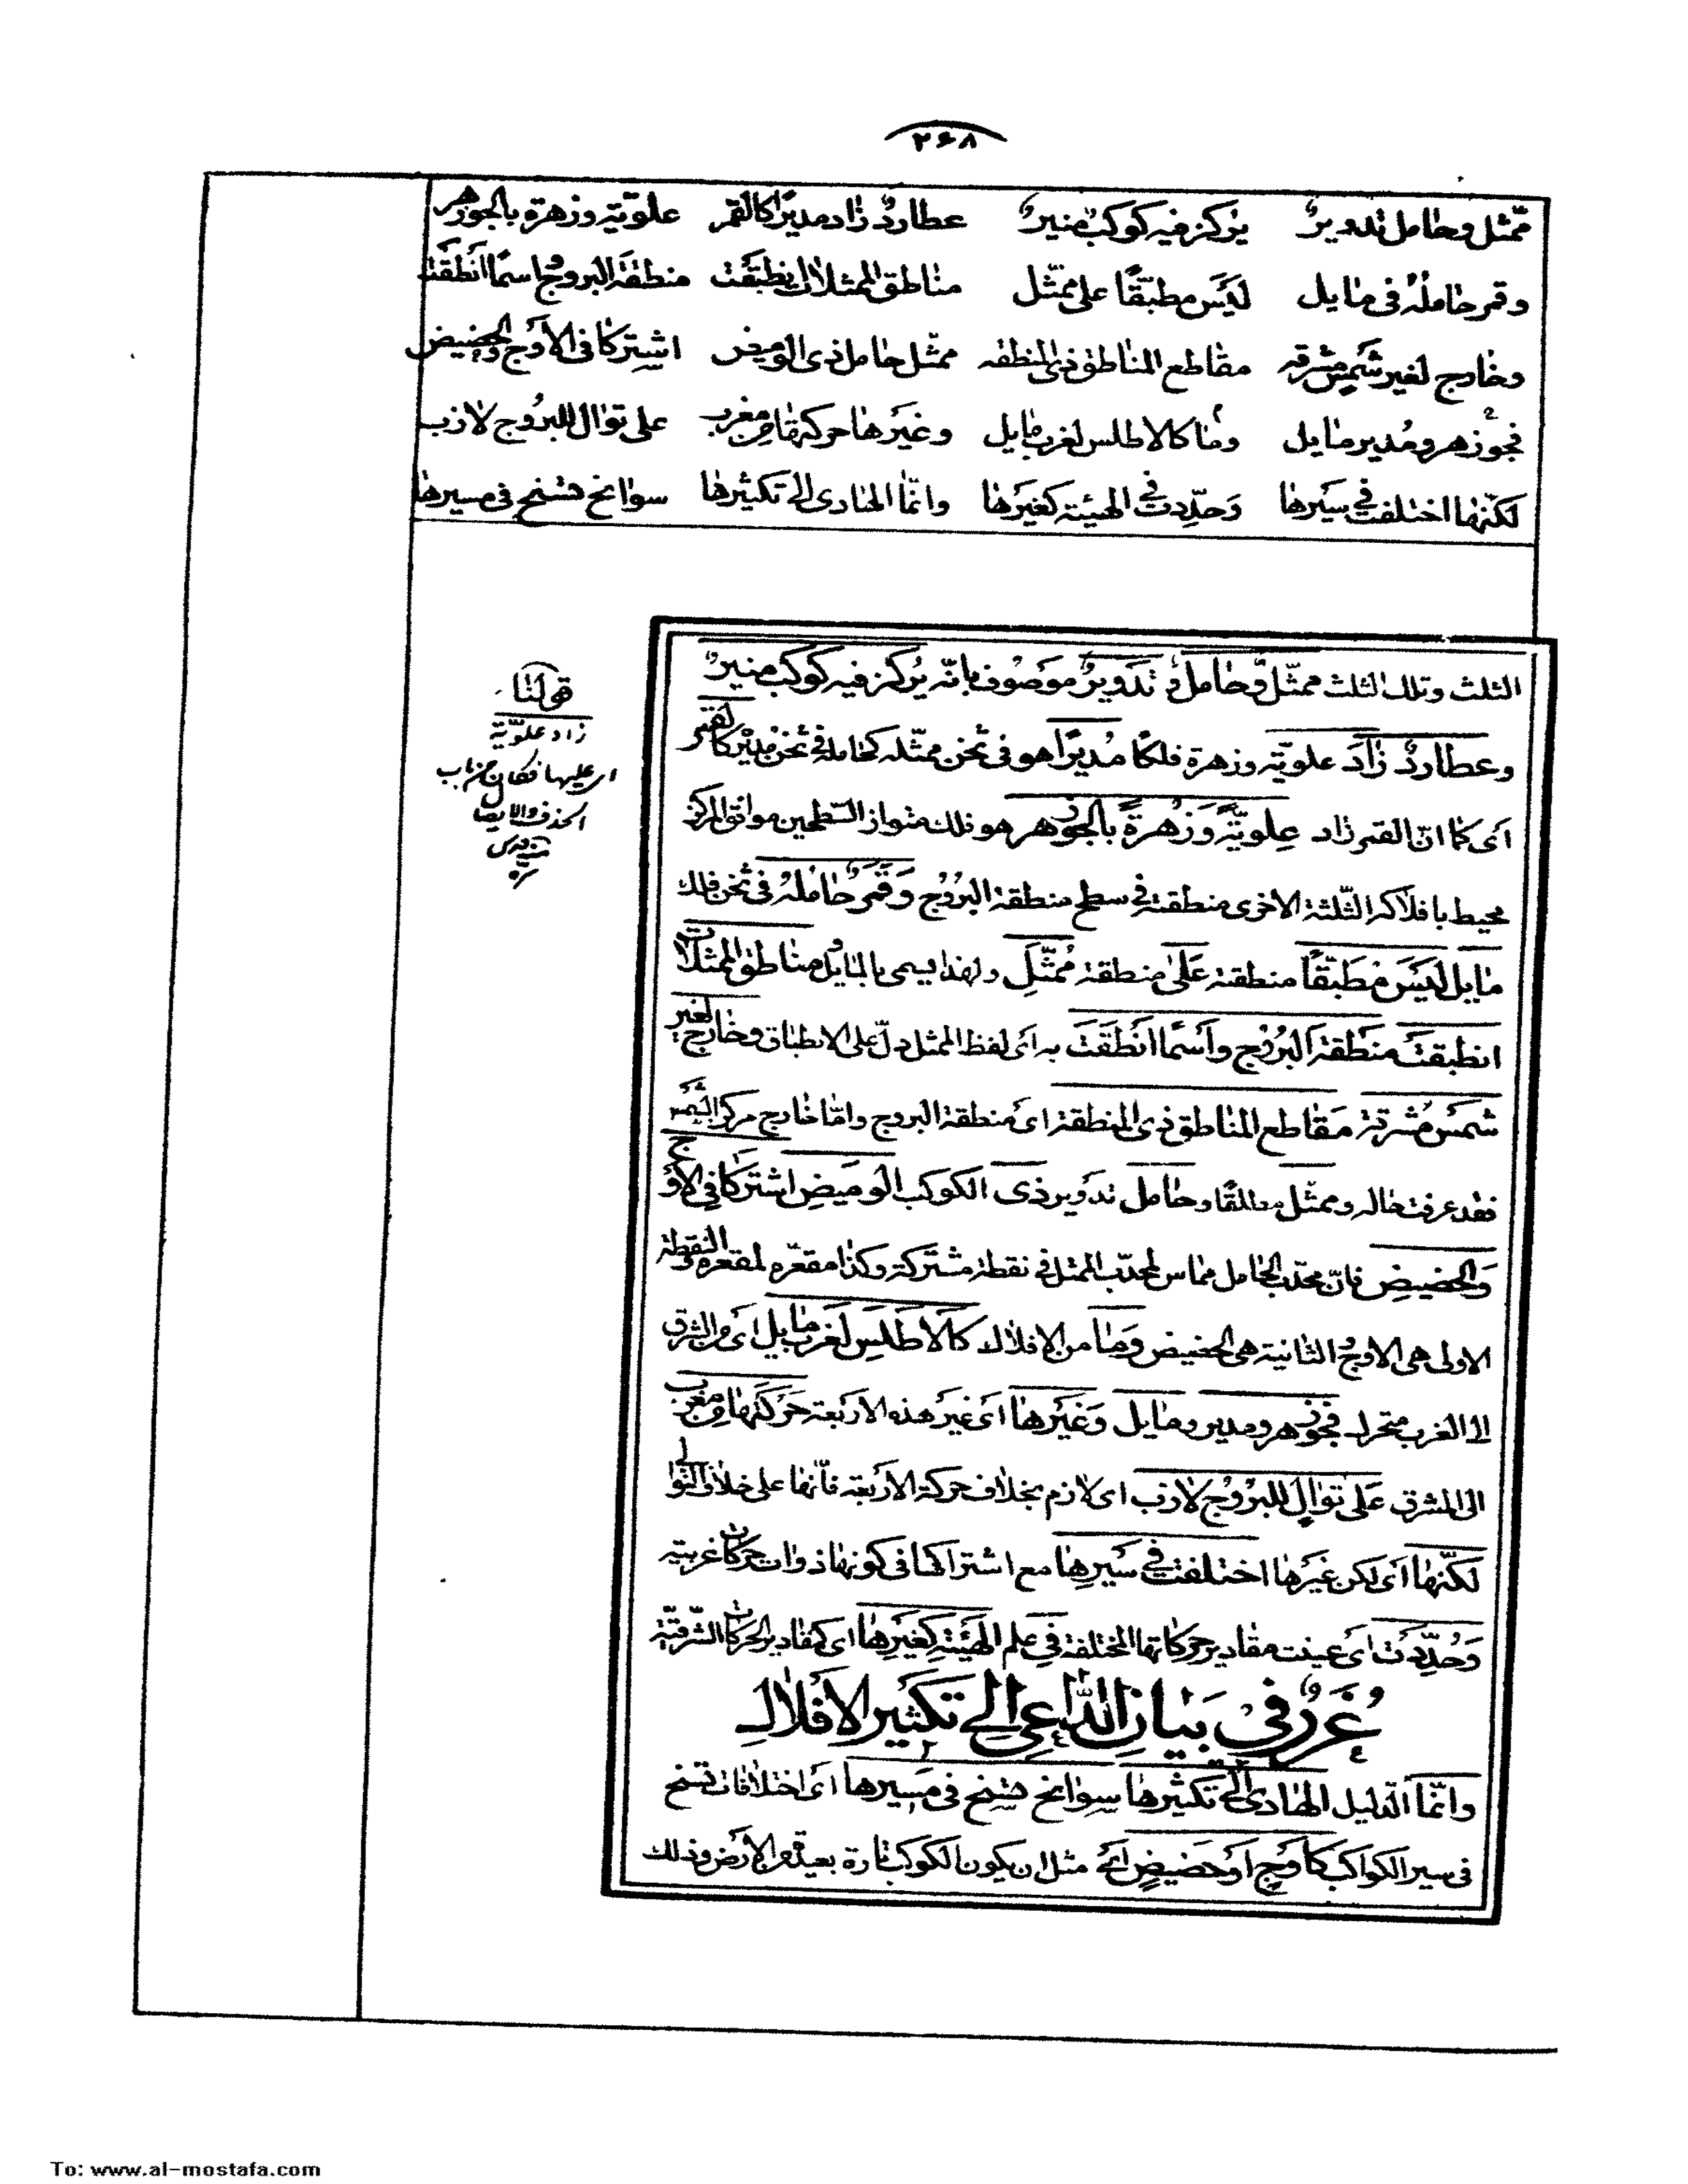 ٢۶٨
ممّثل وحامل تدويرٌ يركز فيه كوكب منيرٌ عطاردٌ زاد مديرًا كالقمر علويّة وزهرة بالجوزهر
وقمر حاملهُ فى مايل لَيسَ مطبّقًا على ممّثل مناطق الممثلات انطبَقَت منطقة البروج اسمًا انَطقَت
وخارج لغير شَمسٍ مشرقه مقاطع المناطق ذى المنطقه ممّثل حامل ذى الوميض اشتركا فى الأوج والحضيض
فجوزهر ومُدير مايل وما كالاطلس لغرب مايل وغيَرها حركة من مغرب على توال للبُروج لازب
لكنّها اختلفت فى سيَرها وَحدِّدت فى الهيئة كغيَرها وانّما الهادى الى تكثيرها سوانح تسنح فى مسيرها
الثلث وتلك الثلث ممثّل وحامل و تدويرٌ موصوف بانّه يُركز فيه كوكب منيرٌ
وعطاردٌ زادَ علويّة وزهرة فلكًا مُديرًا هو فى ثخن ممثّله كحامله فى ثخن مديره كالقمر
اى كما انّ القمر زاد علويّةً وَزُهرةً بالجوزهر هو فلك متواز السّطحين موافق المركز
محيط بافلاكه الثّلثة الاخرى منطقته فى سطح منطقة البرُوج وَقمَرٌ حاملهُ فى ثخن فلك
مايل لَيسَ مُطَبّقًا منطقته عَلى منطقة مُمثّلِ ولهذا يسمى بالمايل و مناطق الممثلات
انطبقَت منَطقة البرُوج وأَسمًا أنطَقَت به اى لفظ الممثل دلّ على الانطباق وخارج لغير
شمسٍ مُشرقة مَقاطع المناطق ذى المنطقة اى منطقة البروج وامّا خارج مركز الشّمس
فقد عرفت حاله وممثّل مطلقًا وحامل تدوير ذى الكوكب الوميضِ اشتركا فى الأوج
وَالحضيضِ فانّ محدّب الحامل مماس لمحدّب الممثل فى نقطة مشتركة وكذا مقعّره لمقعره والنقطة
الاولى هى الاوج و الثانية هى الحضيض وَمَا من الافلاك كالأطلَسِ لغرب مايل اى من الشرق
الى الغرب متحرك فجوزهر ومدير ومايل وَغَيَرها اى غيَر هذه الاربعة حَرَكتُها من مغرب
الى المشرق عَلى توالٍ للبروج لازب اى لازم بخلاف حركة الأربعة فانّها على خلاف التوالى
لَكنّها اى لكن غيَرها اختلفت فى سيَرِها مع اشتراكها فى كونها ذوات حركات غربية
وَحُدِّدَت اى عينت مقادير حركاتها المختلفة فى علم الهَيئَةِ كغيَرِها اى كمقادير الحركات الشّرقيّة
غُرَرٌ فى بَيانِ الدّاعى الى تكثير الافلاك
وانّما الدّليل الهادى الى تكثيرها سوانح تسنح فى مَسيرها اى اختلافات تسنح
فى سير الكواكب كأوجٍ أو حَضيضٍ اى مثل ان يكون الكوكب تارة بعيدة من الأرض وذلك
قولنا
زاد علويّة
اى عليها فكان من باب
الحذف والايصال
منه قدس
سره
To: www.al-mostafa.com